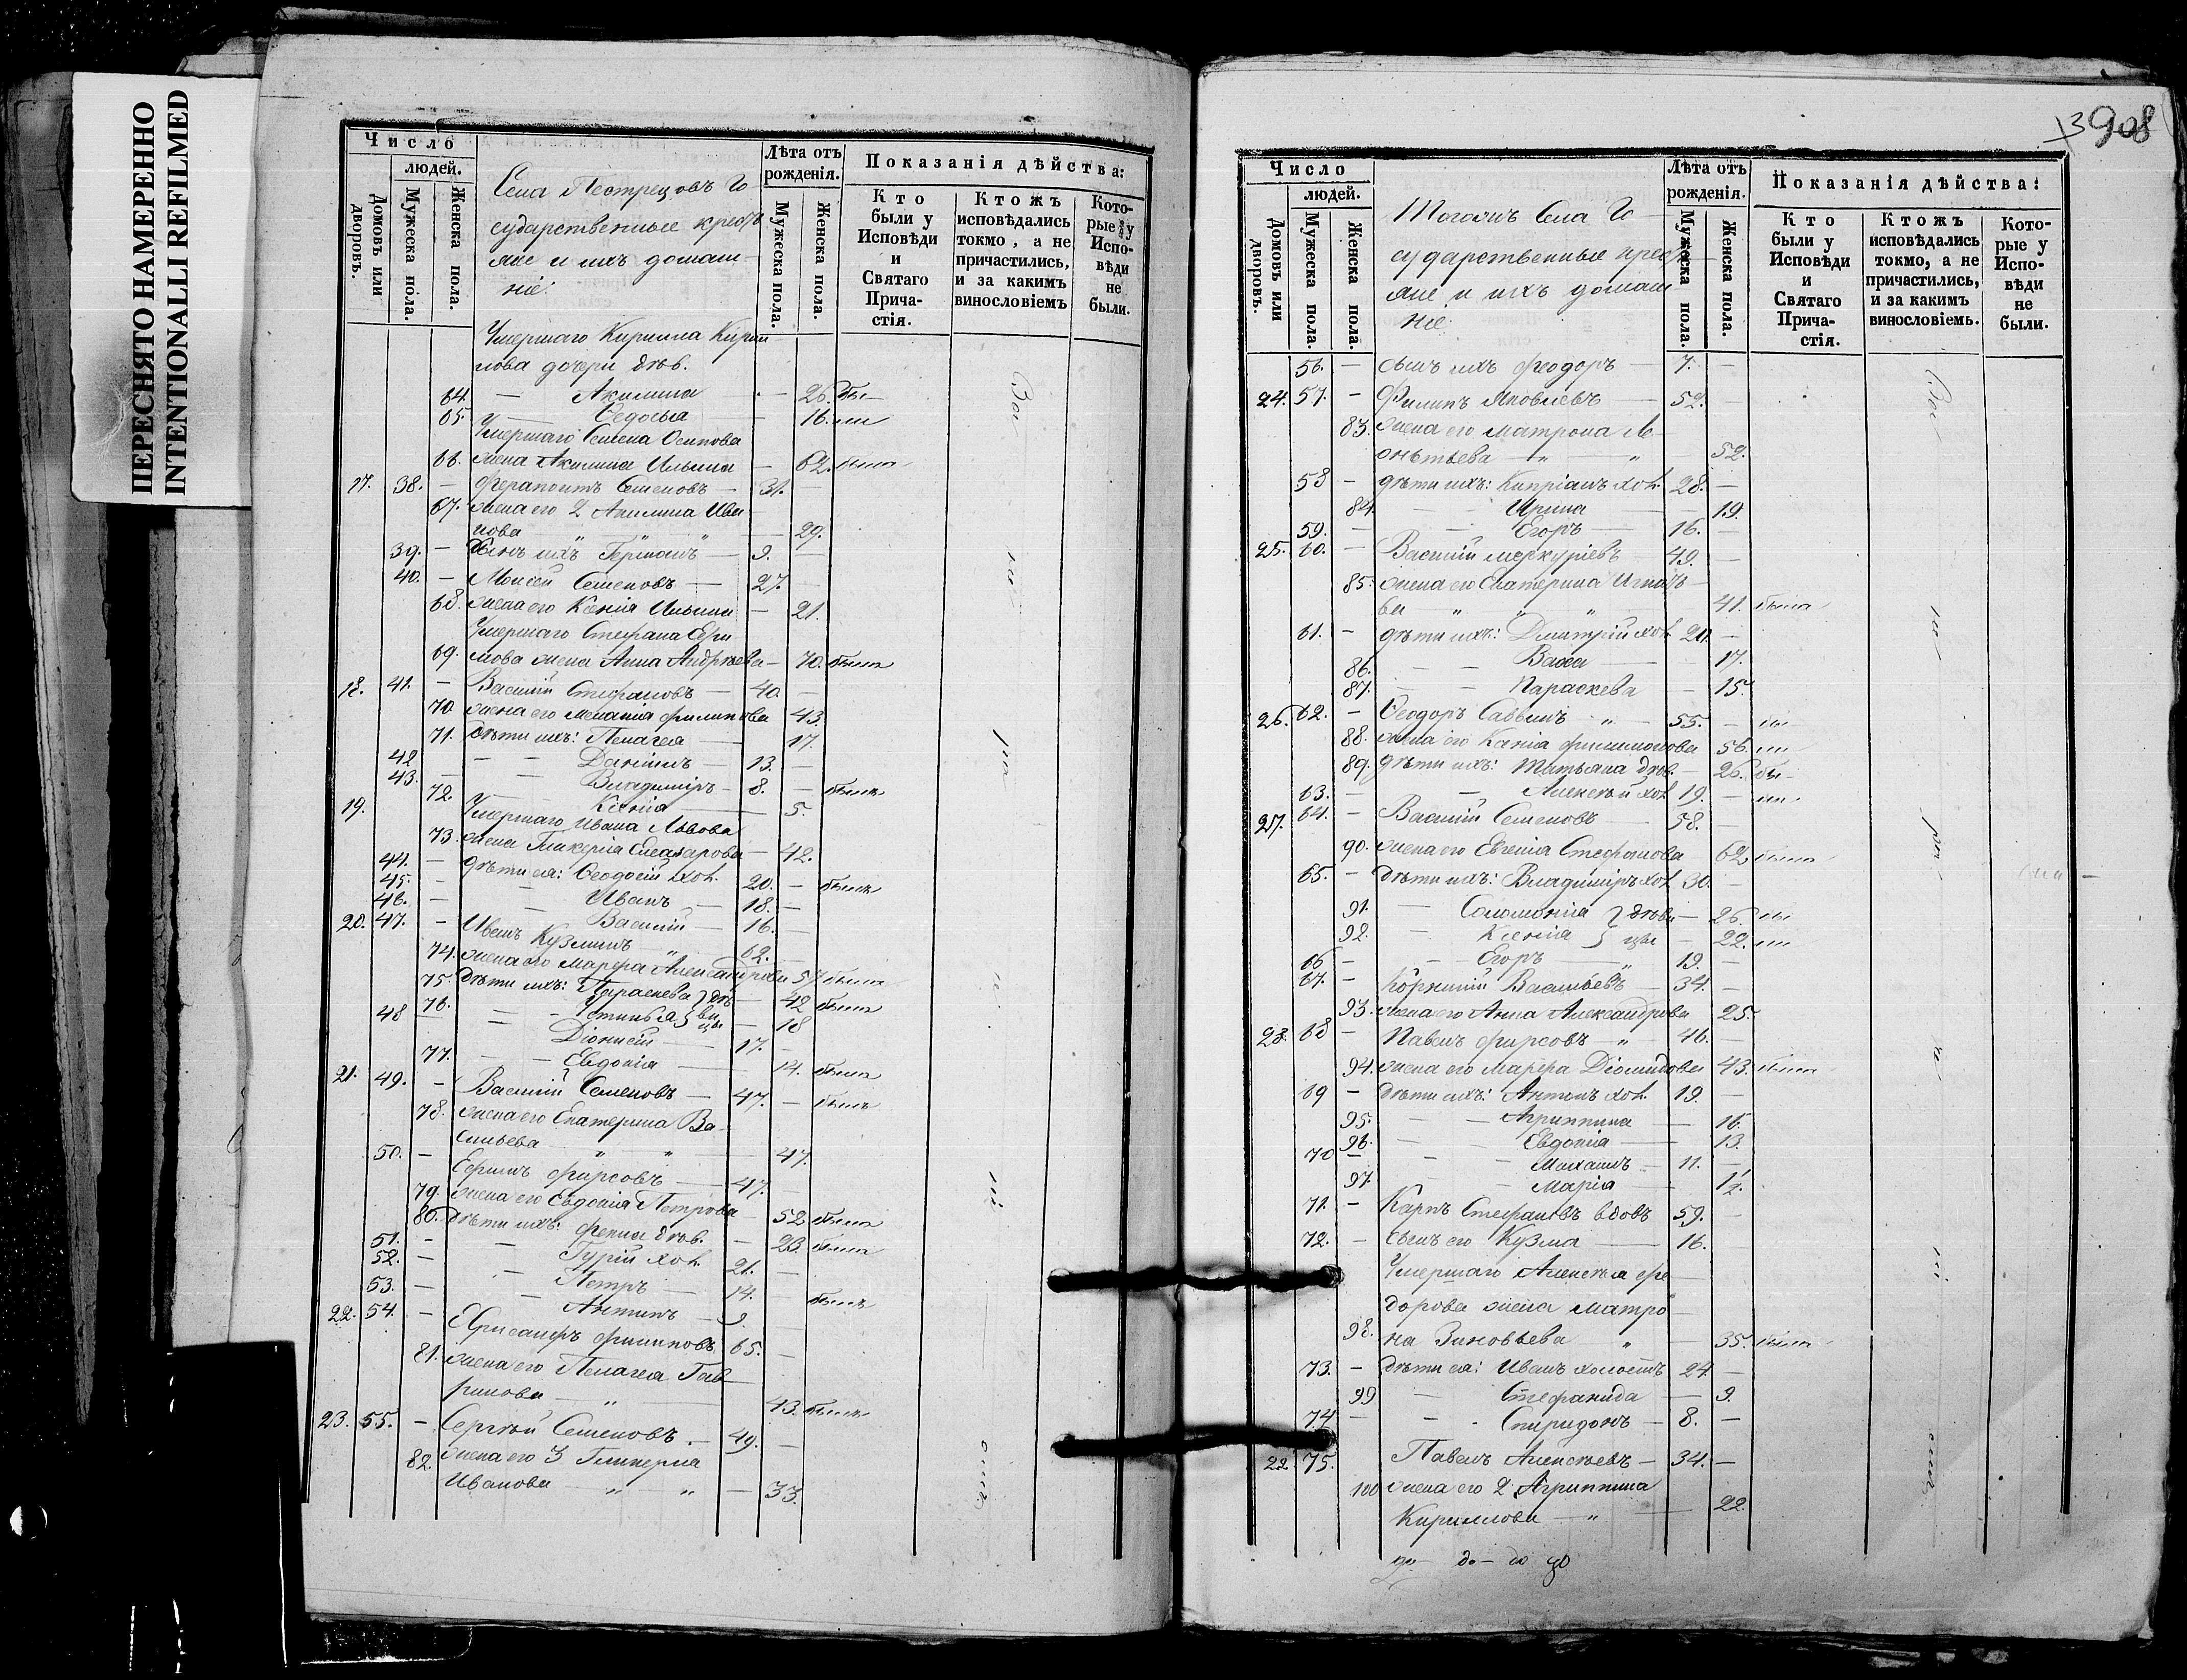 ПЕРЕСНЯТО НАМЕРЕННО
INTENTIONALLI REFILMED
Число
людей.
Домовъ или дворовъ.
Мужеска пола.
Женска пола.
Села Пестрецовъ Го
сударственные кресть
яне и ихъ домаш-
ніе:
Лѣта отъ рожденія.
Мужеска пола.
Женска пола.
Показанія дѣйства:
Кто были у Исповѣди и Святаго Прича-стія.
Ктожъ исповѣдались токмо, а не причастились, и за какимъ винословіемъ
Кото-рые у Испо-вѣди не были.
Умершаго Кирилла Кирил
лова дочери дѣв.
64. — Акилина — 26. бы-
65. Ѳедосья — 16. ли
Умершаго Семена Осипова
66. жена Акилина Ильина — 62. была
17. 38. — Ферапонтъ Семеновъ — 31. —
67. жена его 2 Акилина Ива
нова " " — 29.
39. — Сынъ ихъ Германъ — 9. —
40. — Моисей Семеновъ — 27. —
68. жена его Ксенія Ильина — 21.
Умершаго Стефана Ефи
69. мова жена Анна Андреева — 70. была
18. 41. — Василій Стефановъ — 40. —
70. жена его Меланія Филипова 43.
71. дѣти ихъ: Пелагея — 17.
42 — — Даніилъ — 13. —
43. — — Владиміръ — 8. — былъ
72. Ксенія — 5.
19. Умершаго Ивана Львова
73. жена Гликерія Елеазарова — 42.
44. — дѣти ея: Ѳеодосій хол. 20. — былъ
45. — Иванъ — 18. —
46. — Василій — 16. —
20. 47. — Иванъ Кузминъ " 62. —
74. жена его Марфа Александрова 57 была
75. дѣти ихъ: Параскева } дѣ- 42 была
76. — Устинья } вицы — 18
48 — — Діонисій — 17. —
77. — — Евдокія — 14. была
21. 49. — Василій Семеновъ — 47. — былъ
78. жена его Екатерина Ва-
сильева " " — 47.
50. — Ефимъ Фирсовъ — 47. —
79. жена его Евдокія Петрова 52 была
80. дѣти ихъ: Фекла дѣв. — 23. была
51. — — Гурій хол. 21. —
52. — — Петръ — 14. —
53. — — Антипъ — 9. былъ
22. 54. — Хрисанфъ Филиповъ 65. —
81. жена его Пелагея Гав
рилова " — 43. была
23. 55. — Сергѣй Семеновъ. — 49. —
82. жена его 3 Гликерія
Иванова " " — 33.
908
Число
людей.
Домовъ или дворовъ.
Мужеска пола.
Женска пола.
Тогожъ Села Го
сударственные кресть
яне и ихъ домаш
ніе:
Лѣта отъ рожденія.
Мужеска пола.
Женска пола.
Показанія дѣйства:
Кто были у Исповѣди и Святаго Прича-стія.
Ктожъ исповѣдались токмо, а не причастились, и за какимъ винословіемъ.
Кото-рые у Испо-вѣди не были.
56. — сынъ ихъ Феодоръ — 7. —
24. 57. — Филипъ Яковлевъ — 52. —
83. жена его Матрона Ле-
онтьева " " 52.
58 — дѣти ихъ: Кипріанъ хол. 28. —
84 — — Ирина — 19.
59. Егоръ — 16. —
25. 60. — Василій Меркуріевъ 49. —
85. жена его Екатерина Игнать
ва " " " 41. была
61. — дѣти ихъ: Дмитрій хол. 20. —
86. — — Васса — 17.
87. — — Параскева — 15.
26. 62. — Ѳеодоръ Саввинъ " 55. —
88. жена его Ксенія Филимонова 56. ли
89. дѣти ихъ: Татьяна дѣв. — 26. бы-
63. — — Алексѣй хол. 19. — ли
27. 64. — Василій Семеновъ 58. —
90. жена его Евгенія Стефанова 62 была
65. — дѣти ихъ: Владиміръ хол. 30. —
91. — Соломонія } дѣви — 26.
92. — Ксенія } цы — 22. ли
66 — — Егоръ — 19. —
67. — Корнилій Васильевъ — 34. —
93. жена его Анна Александрова 25.
28. 68 — Павелъ Фирсовъ — " 46. —
94. жена его Марфа Діомидова 43. была
69 — дѣти ихъ: Антонъ хол. 19. —
95. — — Агриппина — 16.
96. — — Евдокія — 13.
70 — — — Михаилъ — 11. —
97. — — Марія — 1/2.
71. — Карпъ Стефановъ вдовъ 59. —
72. — сынъ его Кузма — 16. —
Умершаго Алексѣя Фе
дорова жена Матро
98. на Зиновьева " — 35. была
73. — дѣти ея: Иванъ холостъ 24 —
99 — Стефанида — 9.
74 — — - Спиридонъ — 8. —
22 75. Павелъ Алексѣевъ — 34. —
100 жена его 2 Агриппина
Кириллова — " — 22.